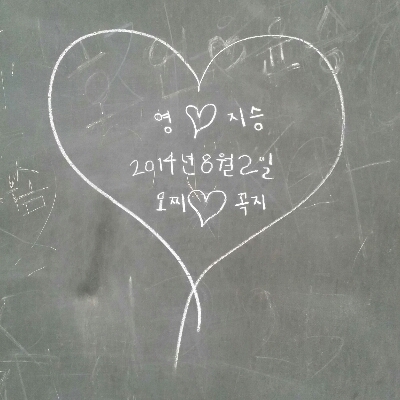 영 ♡ 지승
2014년 8월 2일
오찌 ♡ 꼭지